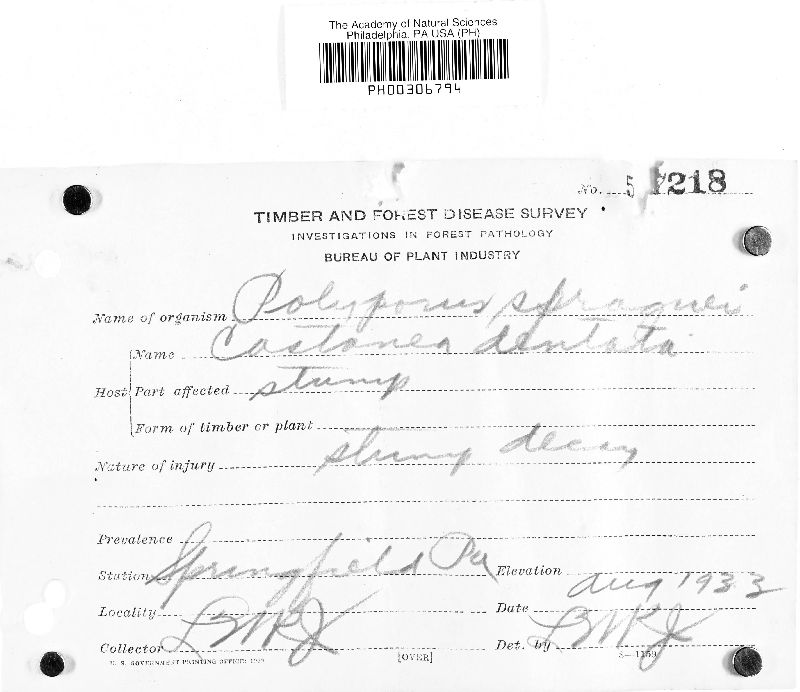 The Academy of Natural Sciences
Philadelphia, PA USA (PH)
PH00306794
No. 57218
TIMBER AND FOREST DISEASE SURVEY
INVESTIGATIONS IN FOREST PATHOLOGY
BUREAU OF PLANT INDUSTRY
Name of organism Polyporus spraguei
Host Name Castanea dentata
Part affected stump
Form of timber or plant
Nature of injury stump decay
Prevalence
Station Springfield Pa Elevation
Locality Date Aug 1933
Collector Det. by
U. S. GOVERNMENT PRINTING OFFICE: [OVER] 8—1159